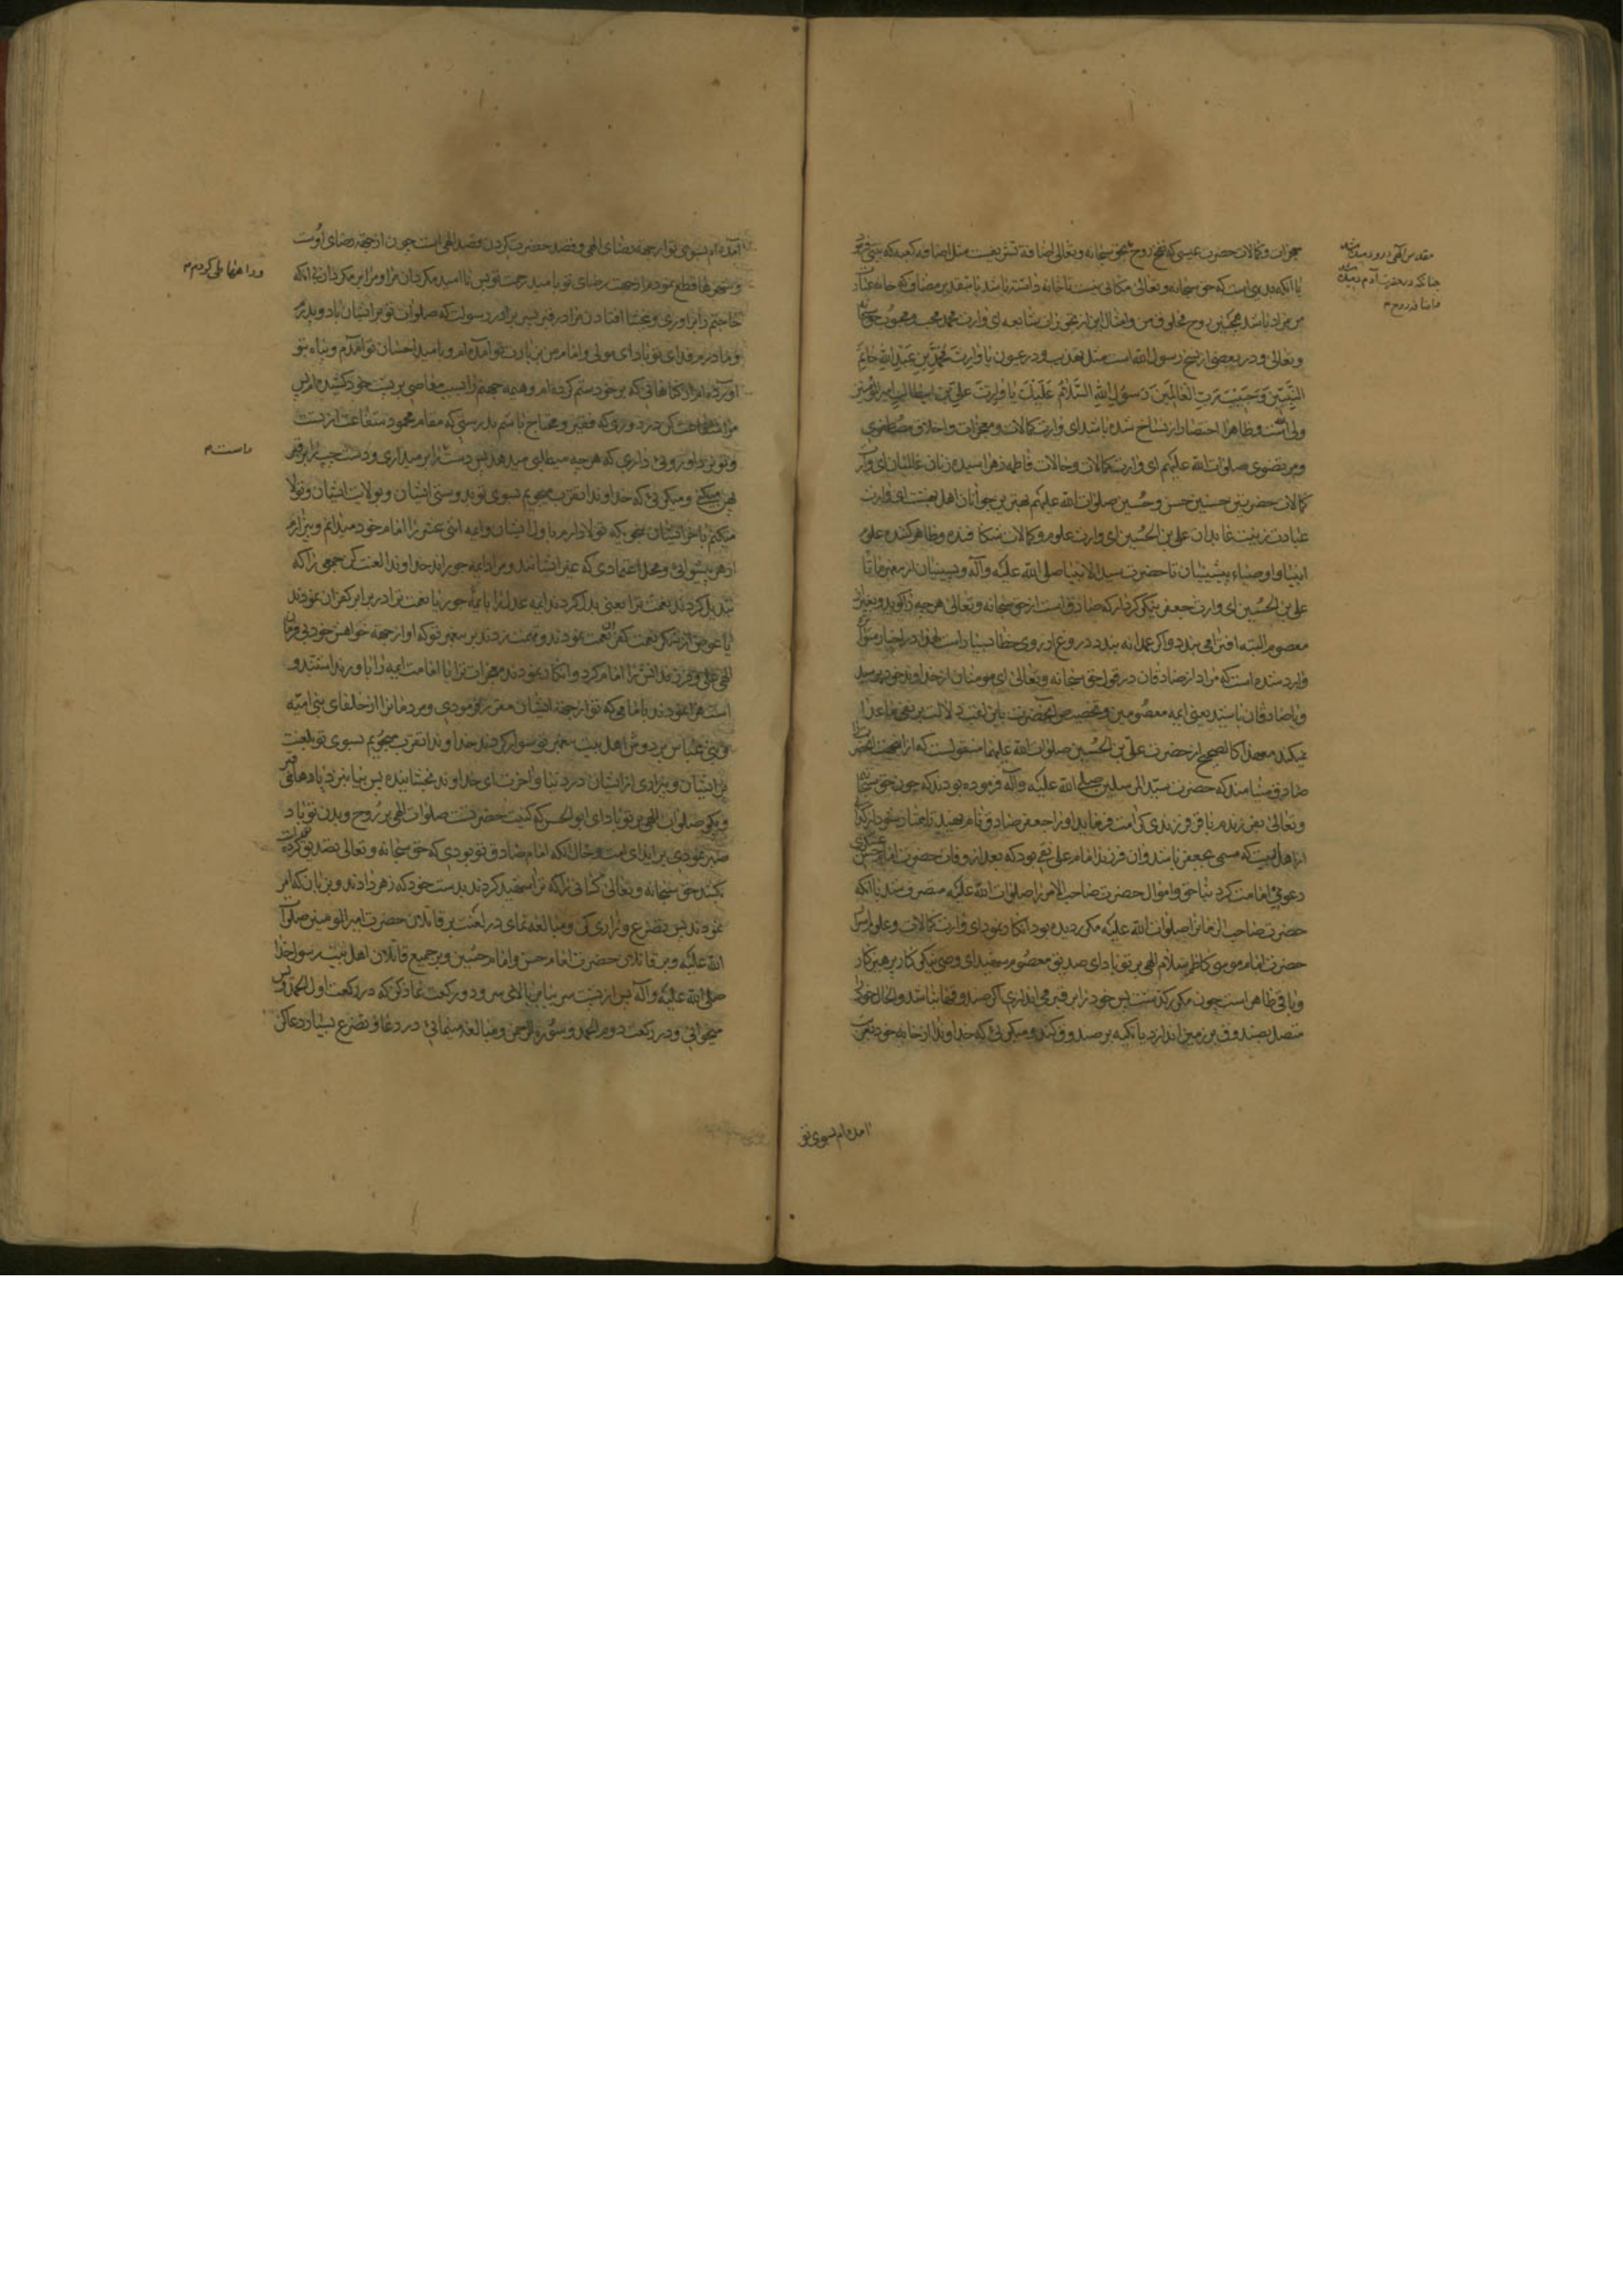 معجزات و کمالات حضرت عیسی که نفخ روح حق سبحانه و تعالی اضافه تشریفیست مثل اضافه کعبه که بیتی فرمود
با آنکه بدیهی است که حق سبحانه و تعالی مکانی نیست تا خانه داشته باشد یا بتقدیر مضاف که خانه عبادت
من مراد باشد همچنین روح مخلوق من و امثال این از مجوزات شایعه ای وارث محمد محب و محبوب حق سبحانه
و تعالی و در بعضی از نسخ رسول الله است مثل تهذیب و در عیون یا وارث محمد بن عبد الله خاتم
النبیین و حبیب رب العالمین رسول الله السلام علیک یا وارث علی بن ابیطالب امیر المؤمنین
ولی الله و ظاهرا اختصار از نساخ شده باشد ای وارث کمالات و معجزات و اخلاق مصطفوی
و مرتضوی صلوات الله علیهم ای وارث کمالات و حالات فاطمه زهرا سیده زنان عالمیان ای وارث
کمالات حضرتین حسنین حسن و حسین صلوات الله علیهم بهترین جوانان اهل بهشت ای وارث
عبادت زینت عابدان علی بن الحسین ای وارث علوم و کمالات شکافنده و ظاهر کننده علوم
انبیا و اوصیاء پیشینیان تا حضرت سید الانبیا صلی الله علیه و آله و پسینیان از پیغمبر ما تا
علی بن الحسین ای وارث جعفر نیکو کردار که صادق است از حق سبحانه و تعالی هر چه را گوید و بغیر از
معصوم البته افترا می بندد و اگر عمدا نه بندد دروغ از روی خطا بسیار است لهذا در اخبار متواتر
وارد شده است که مراد از صادقان در قول حق سبحانه و تعالی ای مومنان از خداوند خود بترسید
و با صادقان باشید یعنی ائمه معصومین و تخصیص آنحضرت باین لقب دلالت بر نفی ما عدا
نمیکند معهذا کالصحیح از حضرت علی بن الحسین صلوات الله علیهما منقولست که از آنجهت آنحضرت را
صادق مینامند که حضرت سید المرسلین صلی الله علیه و آله فرموده بودند که چون حق سبحانه
و تعالی بفرزندم باقر فرزندی کرامت فرماید او را جعفر صادق نام نهید تا ممتاز شود از کذاب
از اهل بیت که مسمی بجعفر باشد و آن فرزند امام علی نقی بود که بعد از وفات حضرت امام حسن عسکری
دعوی امامت کرد بناحق و اموال حضرت صاحب الامر را صلوات الله علیه متصرف شد با آنکه
حضرت صاحب الزمان را صلوات الله علیه مکرر دیده بود انکار نمود ای وارث کمالات و علوم و اسرار
حضرت امام موسی کاظم سلام الهی بر تو باد ای صدیق معصوم شهید ای وصی نیکوکار پرهیزکار
و باقی ظاهر است چون مکرر گذشت پس خود را بر قبر می اندازی اگر صندوقها نباشد و الحال خود را
متصل بصندوق بر زمین اندازد یا تکیه بر صندوق کند و میگوئی که خداوندا از خانه خود بقصد
آمده ام بسوی تو
آمده ام بسوی تو از جهة رضای الهی و قصد حضرت کردن قصد الهی است چون از جهة رضای اوست
و شهرها قطع نمودم از جهت رضای تو بامید رحمت تو پس ناامید مگردان مرا و مرا بر مگردان بی آنکه
حاجتم را برآوری و ببخشا افتادن مرا در قبر پسر برادر رسولت که صلوات تو بر ایشان باد و پدرم
و مادرم فدای تو باد ای مولی و امام من بزیارت تو آمده ام و بامید احسان تو آمدم و پناه بتو
آورده ام از گناهانی که بر خود ستم کرده ام و همه جهنم را بسبب معاصی بر پشت خود کشیده ام پس
مرا شفاعت کن در روزی که فقیر و محتاج باشم بدرستی که مقام محمود شفاعت از تست
و تو نزد او روئی داری که هر چه میطلبی میدهد پس دست راست را بر میداری و دست چپ را بر قبر
پهن میکنی و میگوئی که خداوندا تقرب میجویم بسوی تو بدوستی ایشان و بولایت ایشان و تولا
میکنم بآخر ایشان بنحوی که تولا دارم باول ایشان و ایمه اثنی عشر را امام خود میدانم و بیزارم
از هر پیشوائی و محل اعتمادی که غیر ایشانند و مراد ایمه جورند خداوندا لعنت کن جمعی را که
تبدیل کردند نعمت ترا یعنی بدل کردند ایمه عدل را با یمه جور یا نعمت ترا در برابر کفران نمودند
یا عوض از شکر نعمت کفران نعمت نمودند و تهمت زدند بر پیغمبر تو که او از جهة خواهش خود بی فرمان
الهی علی و فرزندانش را امام کرد و انکار نمودند معجزات ترا یا امامت ایمه را باور نداشتند و
استهزا نمودند بامامی که تو از جهة ایشان مقرر فرمودی و مردمان را از خلفای بنی امیه
و بنی عباس بر دوش اهل بیت پیغمبر تو سوار کردند خداوندا تقرب میجویم بسوی تو بلعنت
بر ایشان و بیزاری از ایشان در دنیا و آخرت ای خداوند بخشاینده پس بیا بنزد پاهای قبر
و بگو صلوات الهی بر تو باد ای ابو الحسن که کنیت حضرتست صلوات الهی بر روح و بدن تو باد
صبر نمودی بر ایذای امت و حال آنکه امام صادق تو بودی که حق سبحانه و تعالی تصدیق تو کرده
بکشد حق سبحانه و تعالی کسانی را که ترا شهید کردند بدست خود که زهر دادند و بزبان که امر
نمودند پس تضرع و زاری کن و مبالغه نمای در لعنت بر قاتلان حضرت امیر المومنین صلوات
الله علیه و بر قاتلان حضرت امام حسن و امام حسین و بر جمیع قاتلان اهل بیت رسول خدا
صلی الله علیه و آله پس از پشت سر بیا ببالای سر و دو رکعت نماز کن که در رکعت اول الحمد و یس
میخوانی و در رکعت دوم الحمد و سوره الرحمن و مبالغه مینمائی در دعا و تضرع بسیار دعا کن
و راهها طی کردم
راست